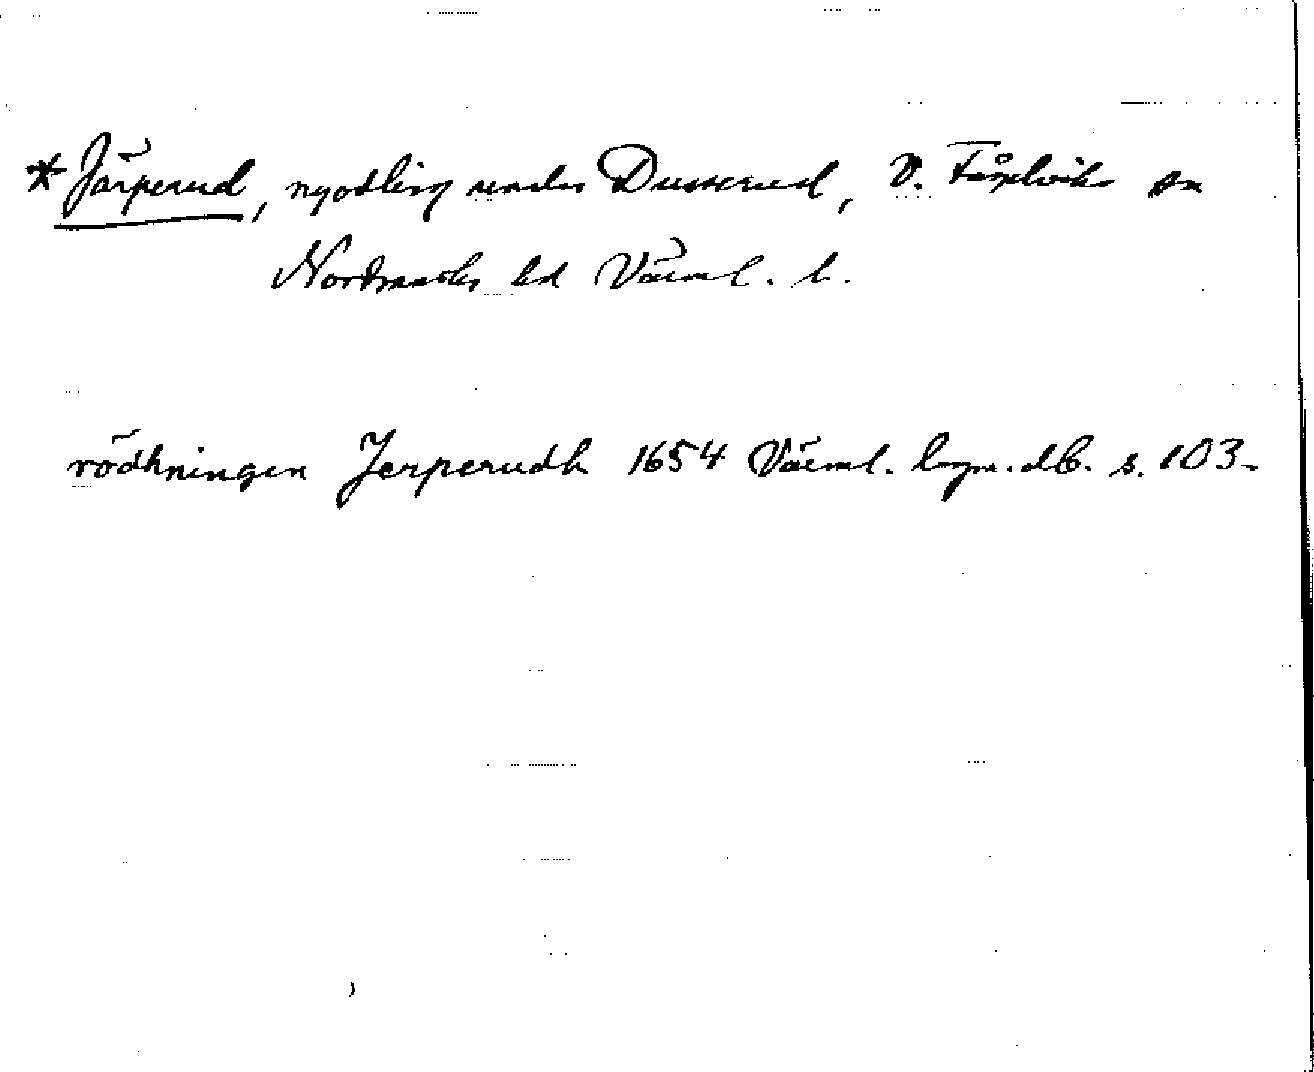 *Järperud, nyodling under Dusserud, V. Fågelviks sn
Nordmarks hd Värml. l.
rödhningen Jerperudh 1654 Värml. lagm.db. s. 103.